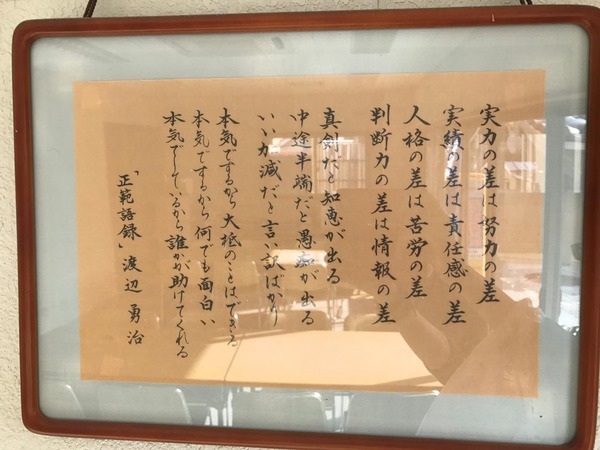 実力の差は努力の差
実績の差は責任感の差
人格の差は苦労の差
判断力の差は情報の差
真剣だと知恵が出る
中途半端だと愚痴が出る
いい加減だと言い訳ばかり
本気でするから大抵のことはできる
本気でするから何でも面白い
本気でしているから誰かが助けてくれる
「正範語録」渡辺勇治